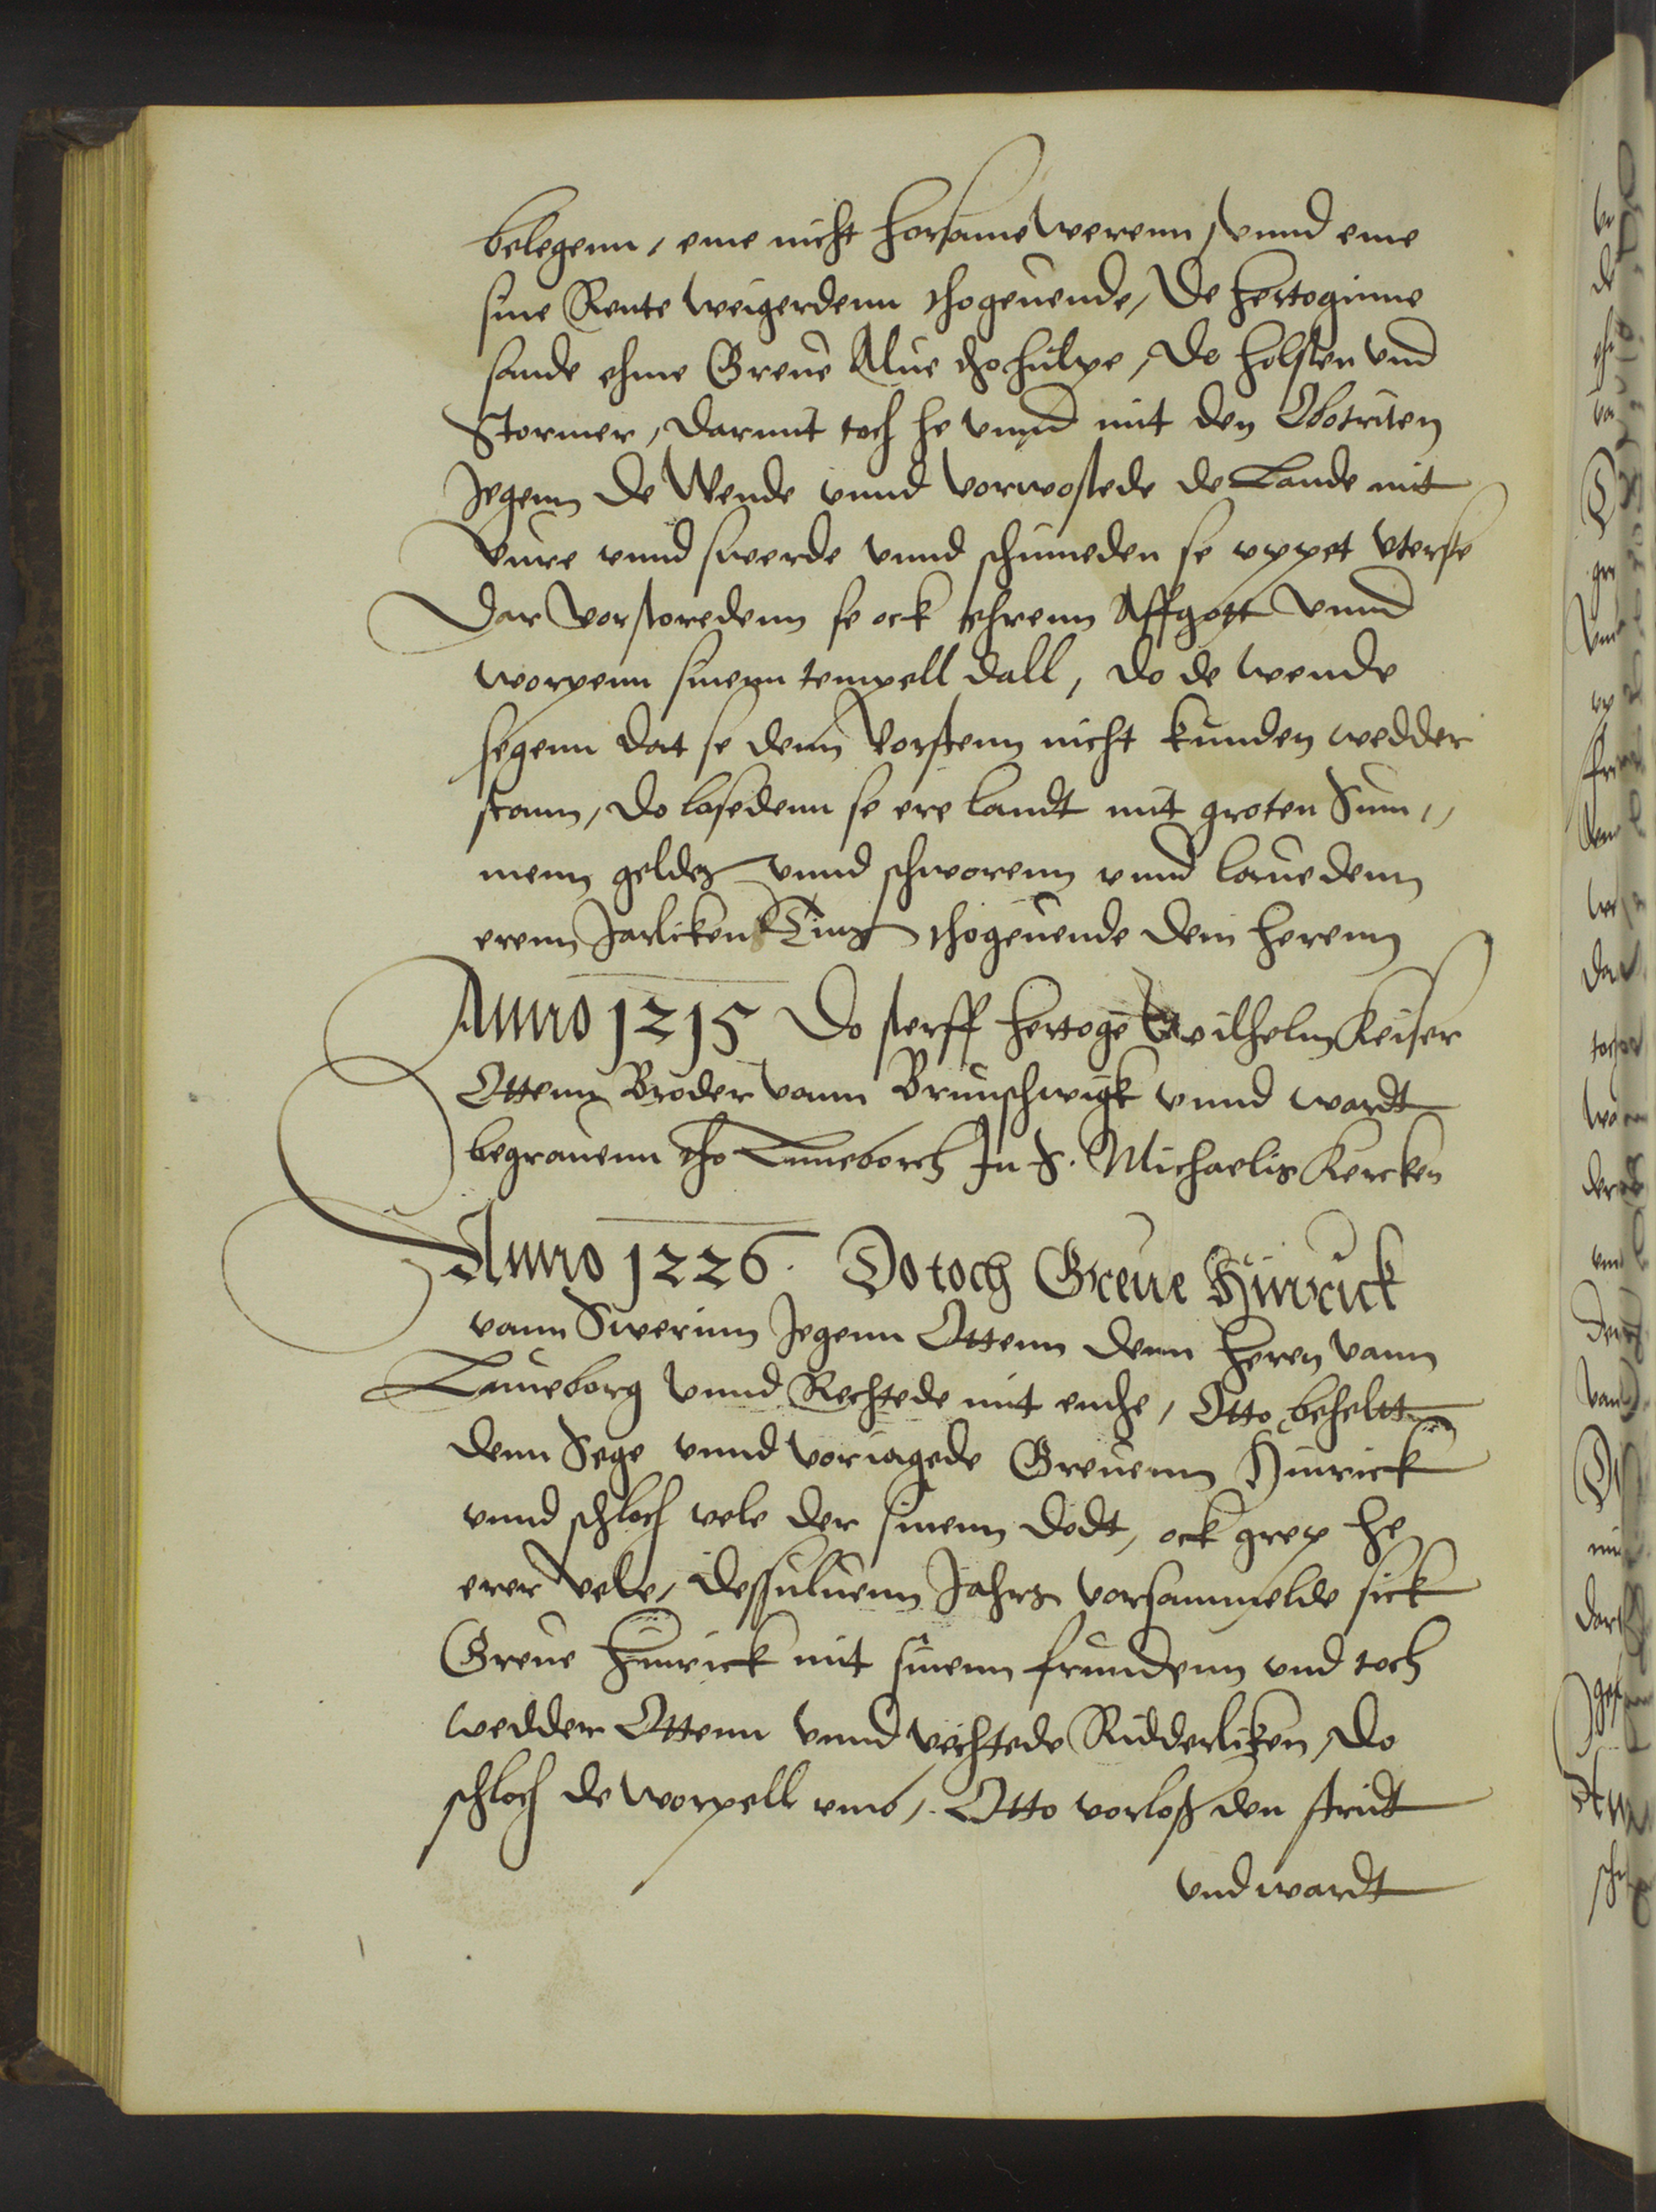 belegenn, eme nicht horsame werenn, vnnd eme
sine Rente weigerdenn thogeuende, De Hertoginne
sande ehme Greue Alue tho hulpe, De holsten vnd
Stormer, darmit toch he vnnd mit den Obotriten
Jegenn de Wende vnnd vorwostede de Lande mit
vure vnnd swerde vnnd schinneden se vppet vterste
Dar vorstoredenn se ock ehrenn Affgott vnnd
worpenn sinenn tempell dall, do de wende
segenn dat se denn Vorstenn nicht kunden wedder
stann, do losedenn se ere landt mit groten Sum,,
menn geldes vnnd schworenn vnnd lauedenn
erenn Jarliken Tins thogeuende dem herenn
Anno 1215 Do sterff hertoge Wilhelm Keiser
Ottenn Broder vann Brunschwigk vnnd wardt
begrauenn tho Luneborch In S. Michaelis Kercken
Anno 1226. Do toch Greue Hinrick
vann Swerinn Jegenn Ottenn denn heren vann
Luneborg vnnd Vechtede mit enche, Otto beheltt
denn Sege vnnd voriagede Greuenn Hinrick
vnnd schloch vele der sinenn dodt, ock grep he
erer vele, dessuluenn Jahrs vorsammelde sick
Greue Hinrick mit sinenn frundenn vnd toch
wedder Ottenn vnnd vechtede Ridderliken, do
schloch de worpell vmb, Otto vorloß den stridt
vnd wardt